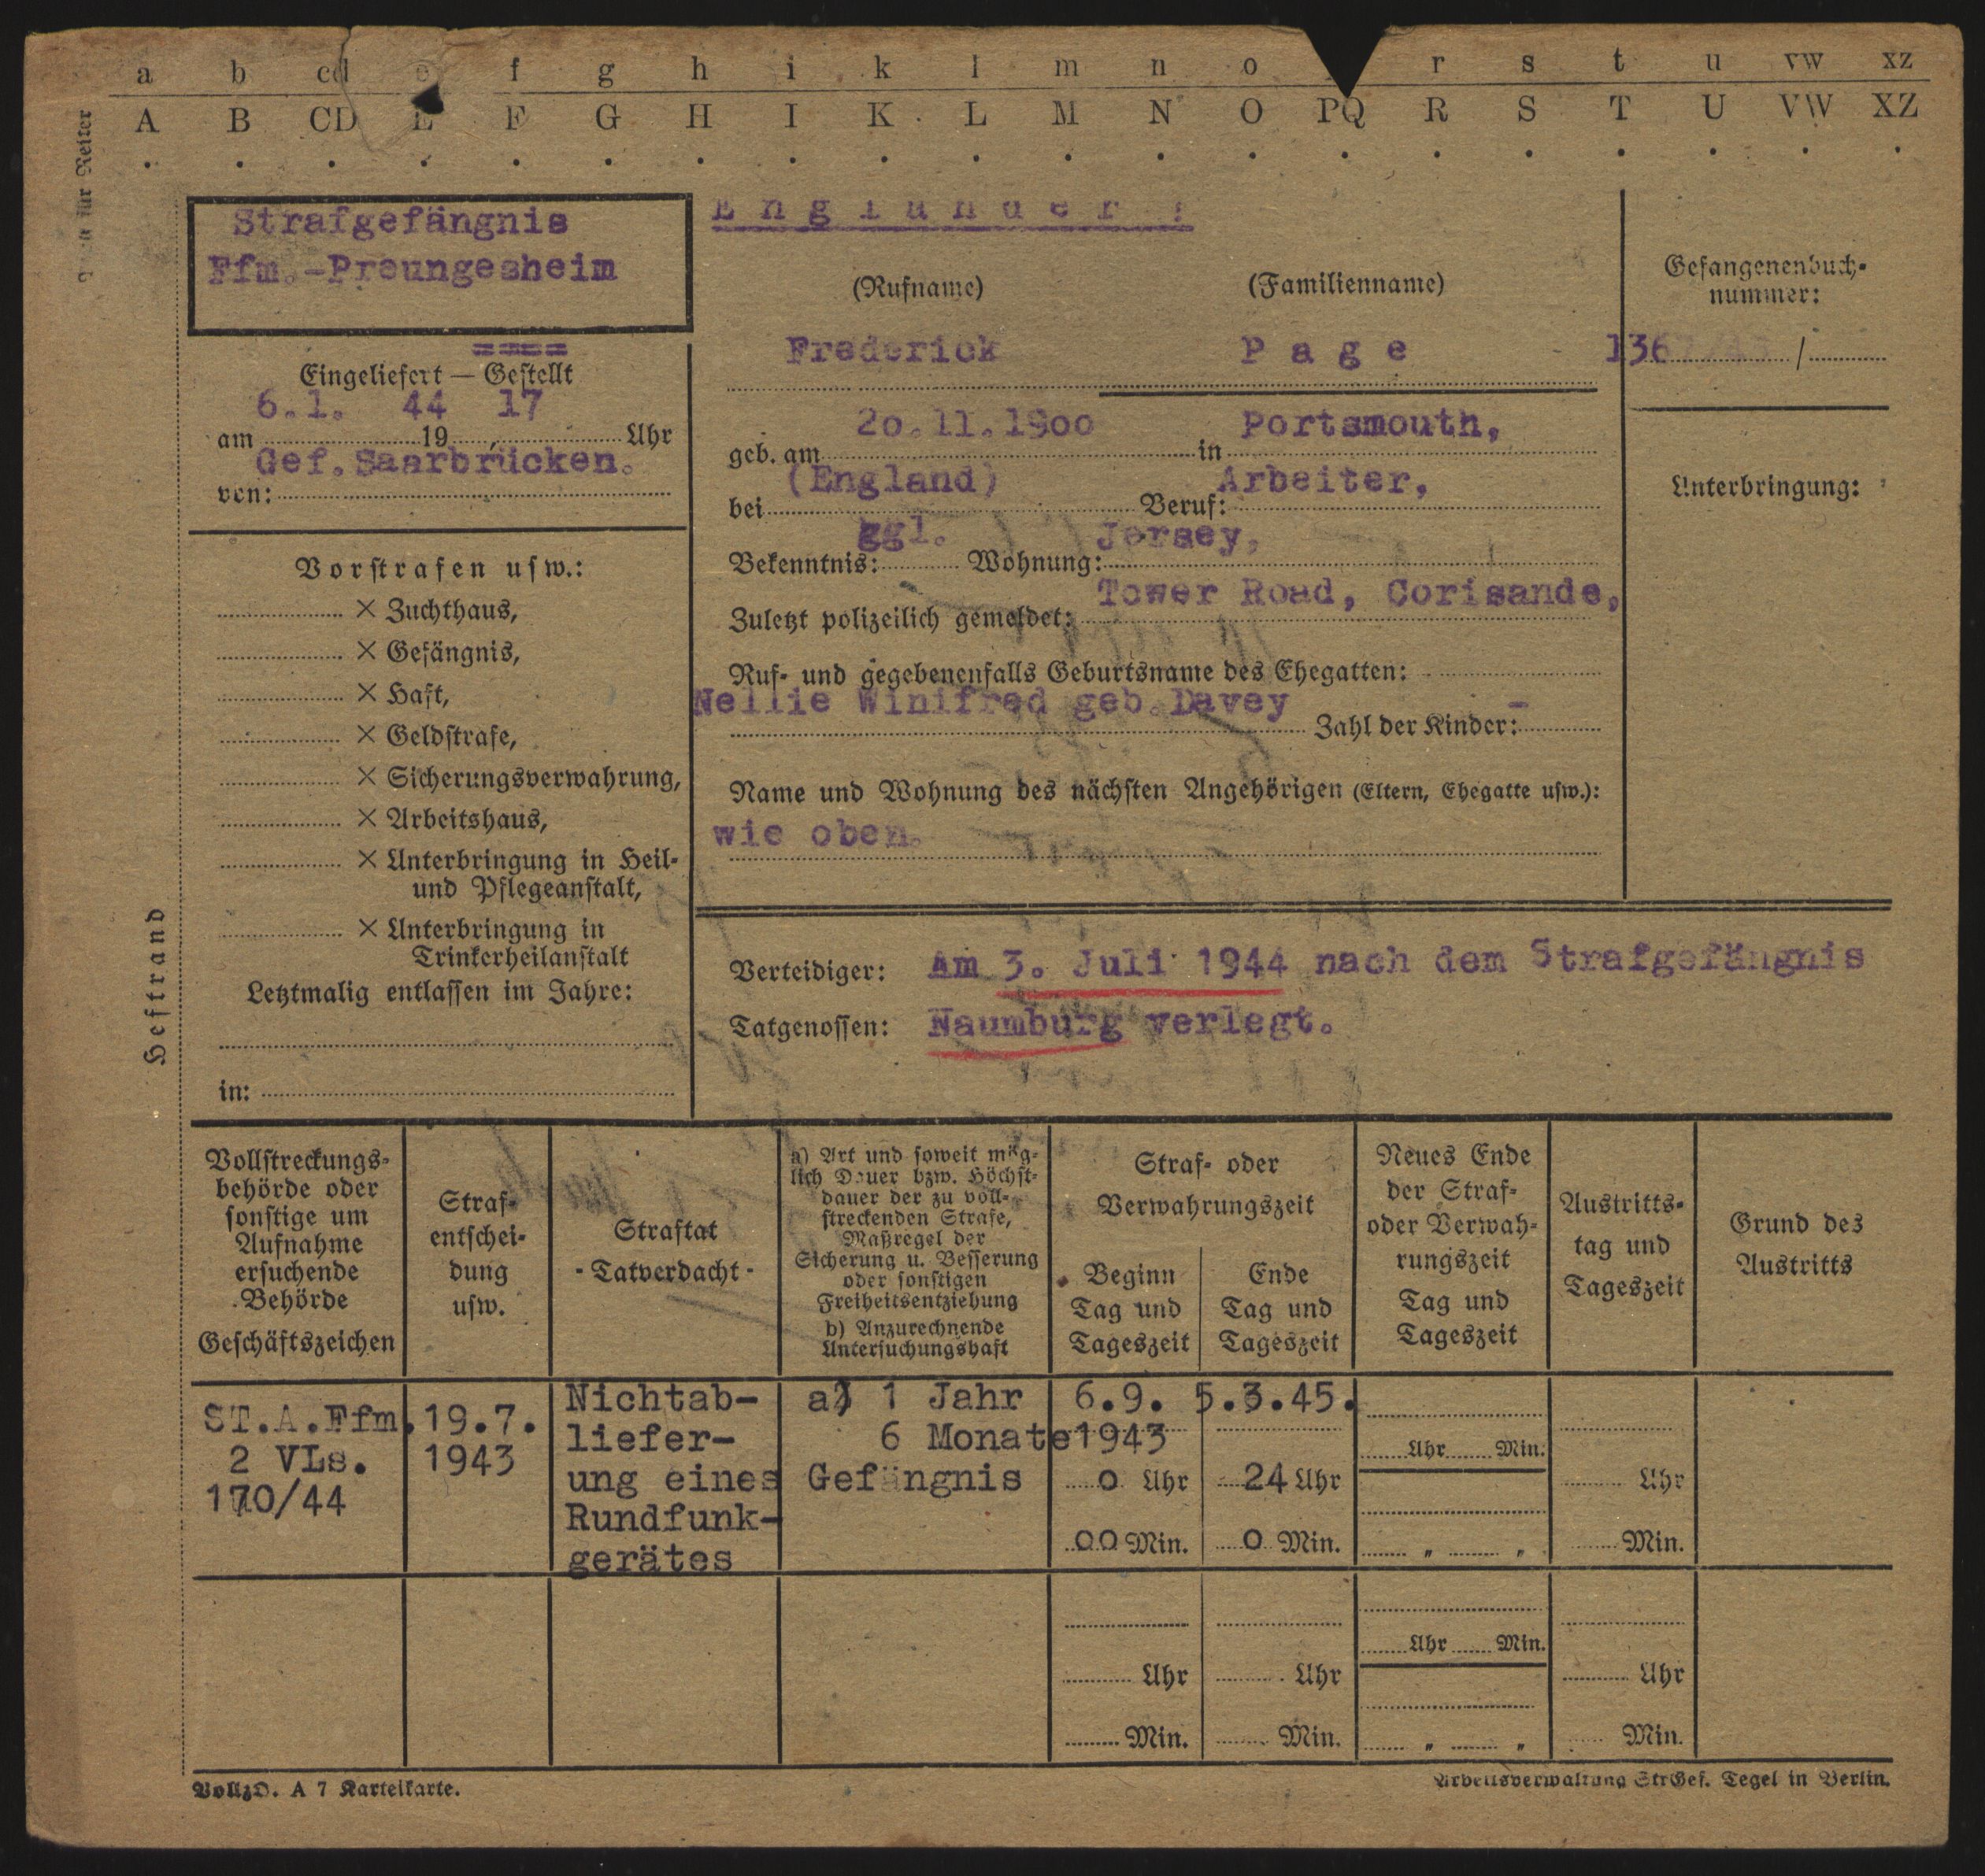 a b cd e f g h i k l m n o r s t u vw xz
A B CD E F G H I K L M N O PQ R S T U VW XZ
für Reiter
Heftrand
Strafgefängnis
Ffm.-Preungesheim
Engländer !
====
Eingeliefert — Gestellt
6.1. 44 17
am 19 , Uhr
Gef.Saarbrücken.
von:
(Rufname) (Familienname)
Frederick Page
2o.11.19oo Portsmouth,
geb. am in
(England) Arbeiter,
bei Beruf:
ggl. Jersey,
Bekenntnis: Wohnung:
Tower Road, Corisande,
Zuletzt polizeilich gemeldet:
Ruf- und gegebenenfalls Geburtsname des Ehegatten:
Nellie Winifred geb.Davey -
Zahl der Kinder:
Name und Wohnung des nächsten Angehörigen (Eltern, Ehegatte usw.):
wie oben.
Gefangenenbuch-
nummer:
/
Unterbringung:
Vorstrafen usw.:
× Zuchthaus,
× Gefängnis,
× Haft,
× Geldstrafe,
× Sicherungsverwahrung,
× Arbeitshaus,
× Unterbringung in Heil-
und Pflegeanstalt,
× Unterbringung in
Trinkerheilanstalt
Letztmalig entlassen im Jahre:
in:
Verteidiger: Am 3. Juli 1944 nach dem Strafgefängnis
Tatgenossen: Naumburg verlegt.
Vollstreckungs-
behörde oder
sonstige um
Aufnahme
ersuchende
Behörde
Geschäftszeichen
Straf-
entschei-
dung
usw.
Straftat
- Tatverdacht -
a) Art und soweit mög-
lich Dauer bzw. Höchst-
dauer der zu voll-
streckenden Strafe,
Maßregel der
Sicherung u. Besserung
oder sonstigen
Freiheitsentziehung
b) Anzurechnende
Untersuchungshaft
Straf- oder
Verwahrungszeit
Beginn
Tag und
Tageszeit
Ende
Tag und
Tageszeit
Neues Ende
der Straf-
oder Verwah-
rungszeit
Tag und
Tageszeit
Austritts-
tag und
Tageszeit
Grund des
Austritts
ST.A.Ffm.
2 VLs.
170/44
19.7.
1943
Nichtab-
liefer-
ung eines
Rundfunk-
gerätes
a) 1 Jahr
6 Monate
Gefängnis
6.9.
1943
0 Uhr
00 Min.
5.3.45.
24 Uhr
0 Min.
Uhr Min.
" "
Uhr
Min.
Uhr
Min.
Uhr
Min.
Uhr Min.
" "
Uhr
Min.
VollzO. A 7 Karteikarte.
Arbeitsverwaltung StrGef. Tegel in Berlin.